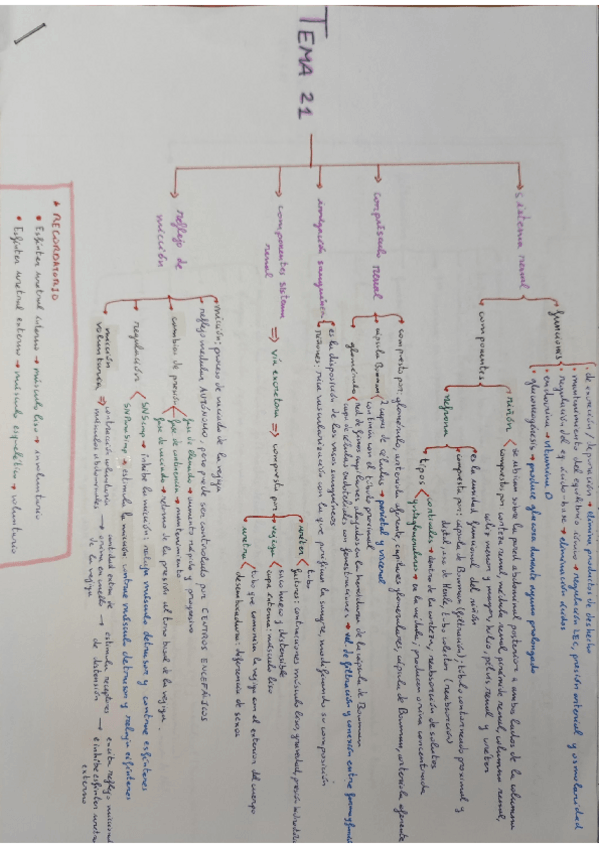 TEMA 21
→ sistema renal
funciones
• de excreción / depuración → elimina productos de desecho
mantenimiento del equilibrio iónico → regulación LEC, presión arterial y osmolaridad
• regulación del eq. ácido-base → eliminación ácidos
• endocrina → vitamina D
• glucogénesis → produce glucosa durante ayuno prolongado
componentes
riñón
se sitúan sobre la pared abdominal posterior a ambos lados de la columna
compuesto por corteza renal, médula renal, pirámide renal, columna renal,
cáliz menor y mayor, pelvis renal y uréter
nefrona
es la unidad funcional del riñón
compuesta por: cápsula de Bowman (filtración), túbulo contorneado proximal y
distal, asa de Henle, tubo colector (reabsorción)
tipos
corticales → dentro de la corteza, reabsorción de solutos
yuxtaglomerulares → en la médula, producen orina concentrada
→ corpúsculo renal
compuesto por: glomérulo, arteriola aferente, capilares glomerulares, cápsula de Bowman, arteriola eferente
cápsula Bowman
2 capas de células → parietal y visceral
continúa con el túbulo proximal
glomérulo
red de finos capilares alojados en la hendidura de la cápsula de Bowman
capa de células endoteliales con fenestraciones →
→ irrigación sanguínea
es la disposición de los vasos sanguíneos
riñones: rica vascularización con la que purifican la sangre, modificando su composición
→ componentes sistema renal
⇒ vía excretora ⇒ compuesta por
uréter
tubo
funciones: contracciones músculo liso, gravedad, presión hidrostática
vejiga
saco hueco y distensible
capa externa: músculo liso
uretra
tubo que comunica la vejiga con el exterior del cuerpo
desembocadura: diferencia de sexos
→ reflejo de micción
micción: proceso de vaciado de la vejiga
reflejo medular AUTÓNOMO, pero puede ser controlado por CENTROS ENCEFÁLICOS
cambios de presión
fase de llenado → aumento rápido y progresivo
fase de contención → mantenimiento
fase de vaciado → retorno de la presión al tono basal de la vejiga
regulación
SNSimp → inhibe la micción: relaja músculo detrusor y contrae esfínteres
SNParasimp → estimula la micción: contrae músculo detrusor y relaja esfínteres
micción voluntaria
⇒ contracción voluntaria músculos abdominales → cantidad extra de orina en cuello de la vejiga → estimula receptores de distensión → excita reflejo miccional e inhibe esfínter uretral externo
* RECORDATORIO
• Esfínter uretral interno → músculo liso → involuntario
• Esfínter uretral externo → músculo esquelético → voluntario